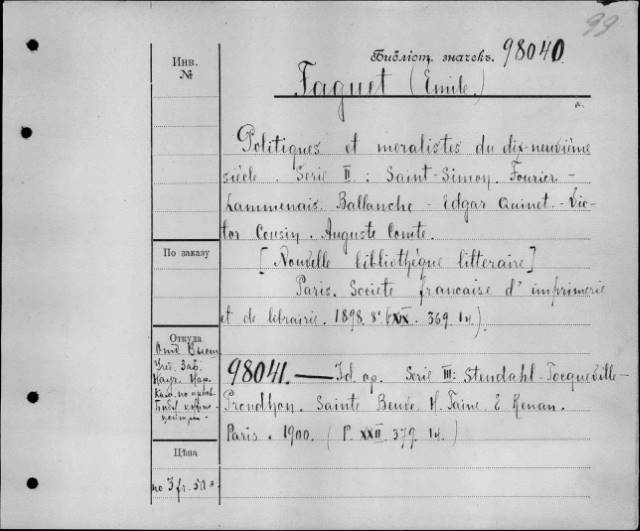 99
Инв.
№
Библіот. значекъ. 98040.
Faguet (Emile.)
Politiques et moralistes du dix-neuvième
siècle. Serie II: Saint-Simon. Fourier -
Lammenais. Ballanche - Edgar Quinet. - Vic-
tor Cousin. Auguste Comte.
[Nouvelle bibliothèque litteraire]
Paris. Societe francaise d'imprimerie
et de librairie. 1898. 8° (XX. 369. in.)
По заказу
Откуда
Отд
Учеб. Зав.
98041. — Id. op. Serie III: Stendahl - Tocqueville -
Proudhon. Sainte Beuve. H. Taine. E. Renan.
Paris. 1900. (P. XXII. 379. in.)
Цѣна
по 3 fr. 50 c.